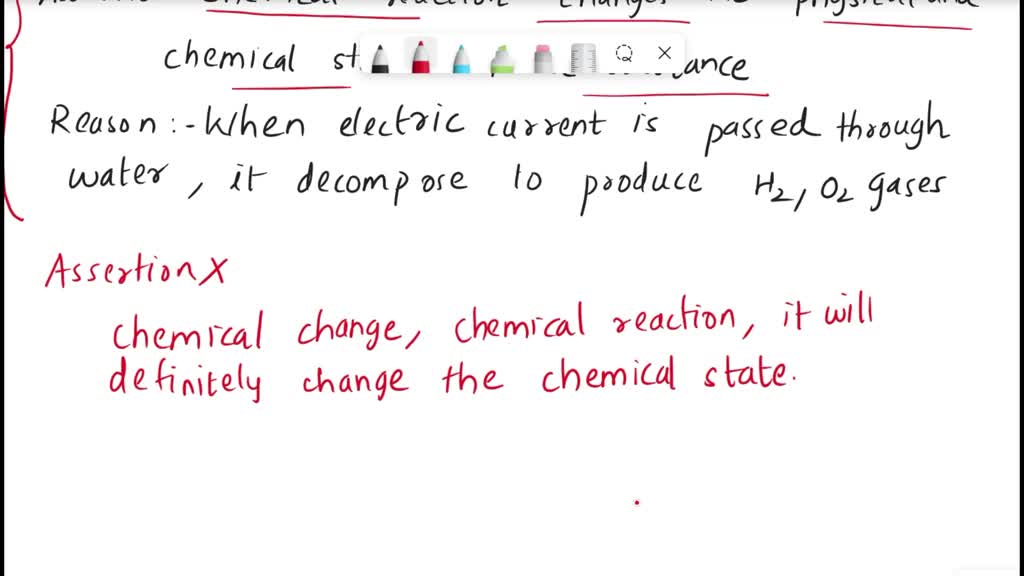 chemical reaction changes physical and
chemical
Reason :- When electric current is passed through
water, it decompose to produce H2, O2 gases
Assertion X
chemical change, chemical reaction, it will
definitely change the chemical state.